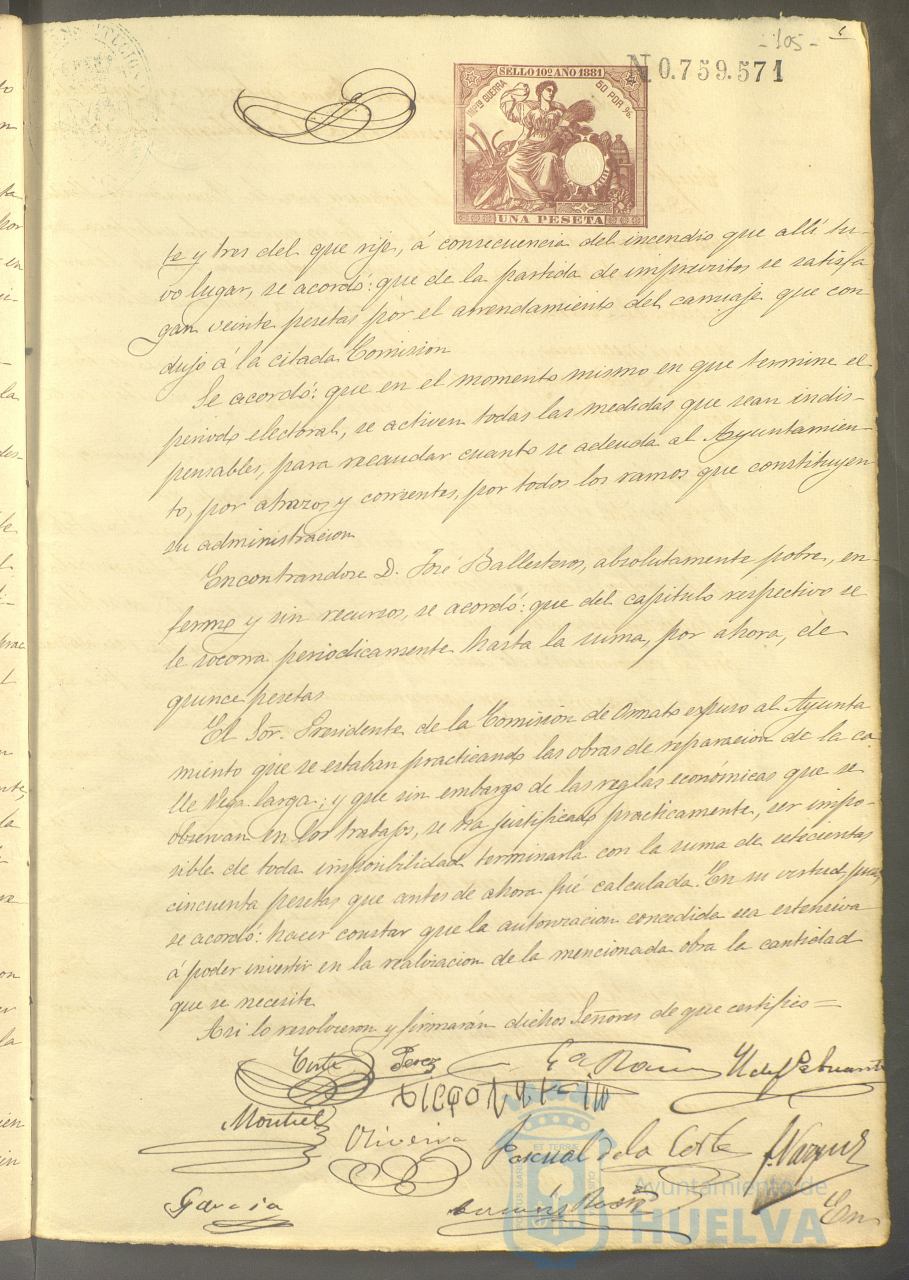 -105-
N 0.759.571
SELLO 10º AÑO 1881
IMPtº GUERRA 50 POR %
UNA PESETA
te y tres del que rije, á consecuencia del incendio que allí tu-
vo lugar, se acordó: que de la partida de imprevistos se satisfa
gan veinte pesetas por el arrendamiento del carruaje que con
dujo á la citada Comision
Se acordó: que en el momento mismo en que termine el
periodo electoral, se activen todas las medidas que sean indis-
pensables, para recaudar cuanto se adeuda al Ayuntamien-
to, por atrazos y corrientes, por todos los ramos que constituyen
su administracion
Encontrandose D. José Ballesteros, absolutamente pobre, en-
fermo y sin recursos, se acordó: que del capitulo respectivo se
le socorra periodicamente hasta la suma, por ahora, de
quince pesetas
El Sor. Presidente de la Comision de Ornato expuso al Ayunta
miento que se estaban practicando las obras de reparacion de la ca
lle Vega larga; y que sin embargo de las reglas económicas que se
observan en los trabajos, se ha justificado practicamente, ser impo-
sible de toda imposibilidad terminarla con la suma de setecientas
cincuenta pesetas que antes de ahora fué calculada. En su virtud, pues,
se acordó: hacer constar que la autorizacion concedida sea estensiva
á poder invertir en la realizacion de la mencionada obra la cantidad
que se necesite
Asi lo resolvieron y firmarán dichos Señores de que certifico =
Corte Perez
Montiel Oliveira Pascual de la Corte J. Vazquez
Garcia
Ayuntamiento de
HUELVA
En